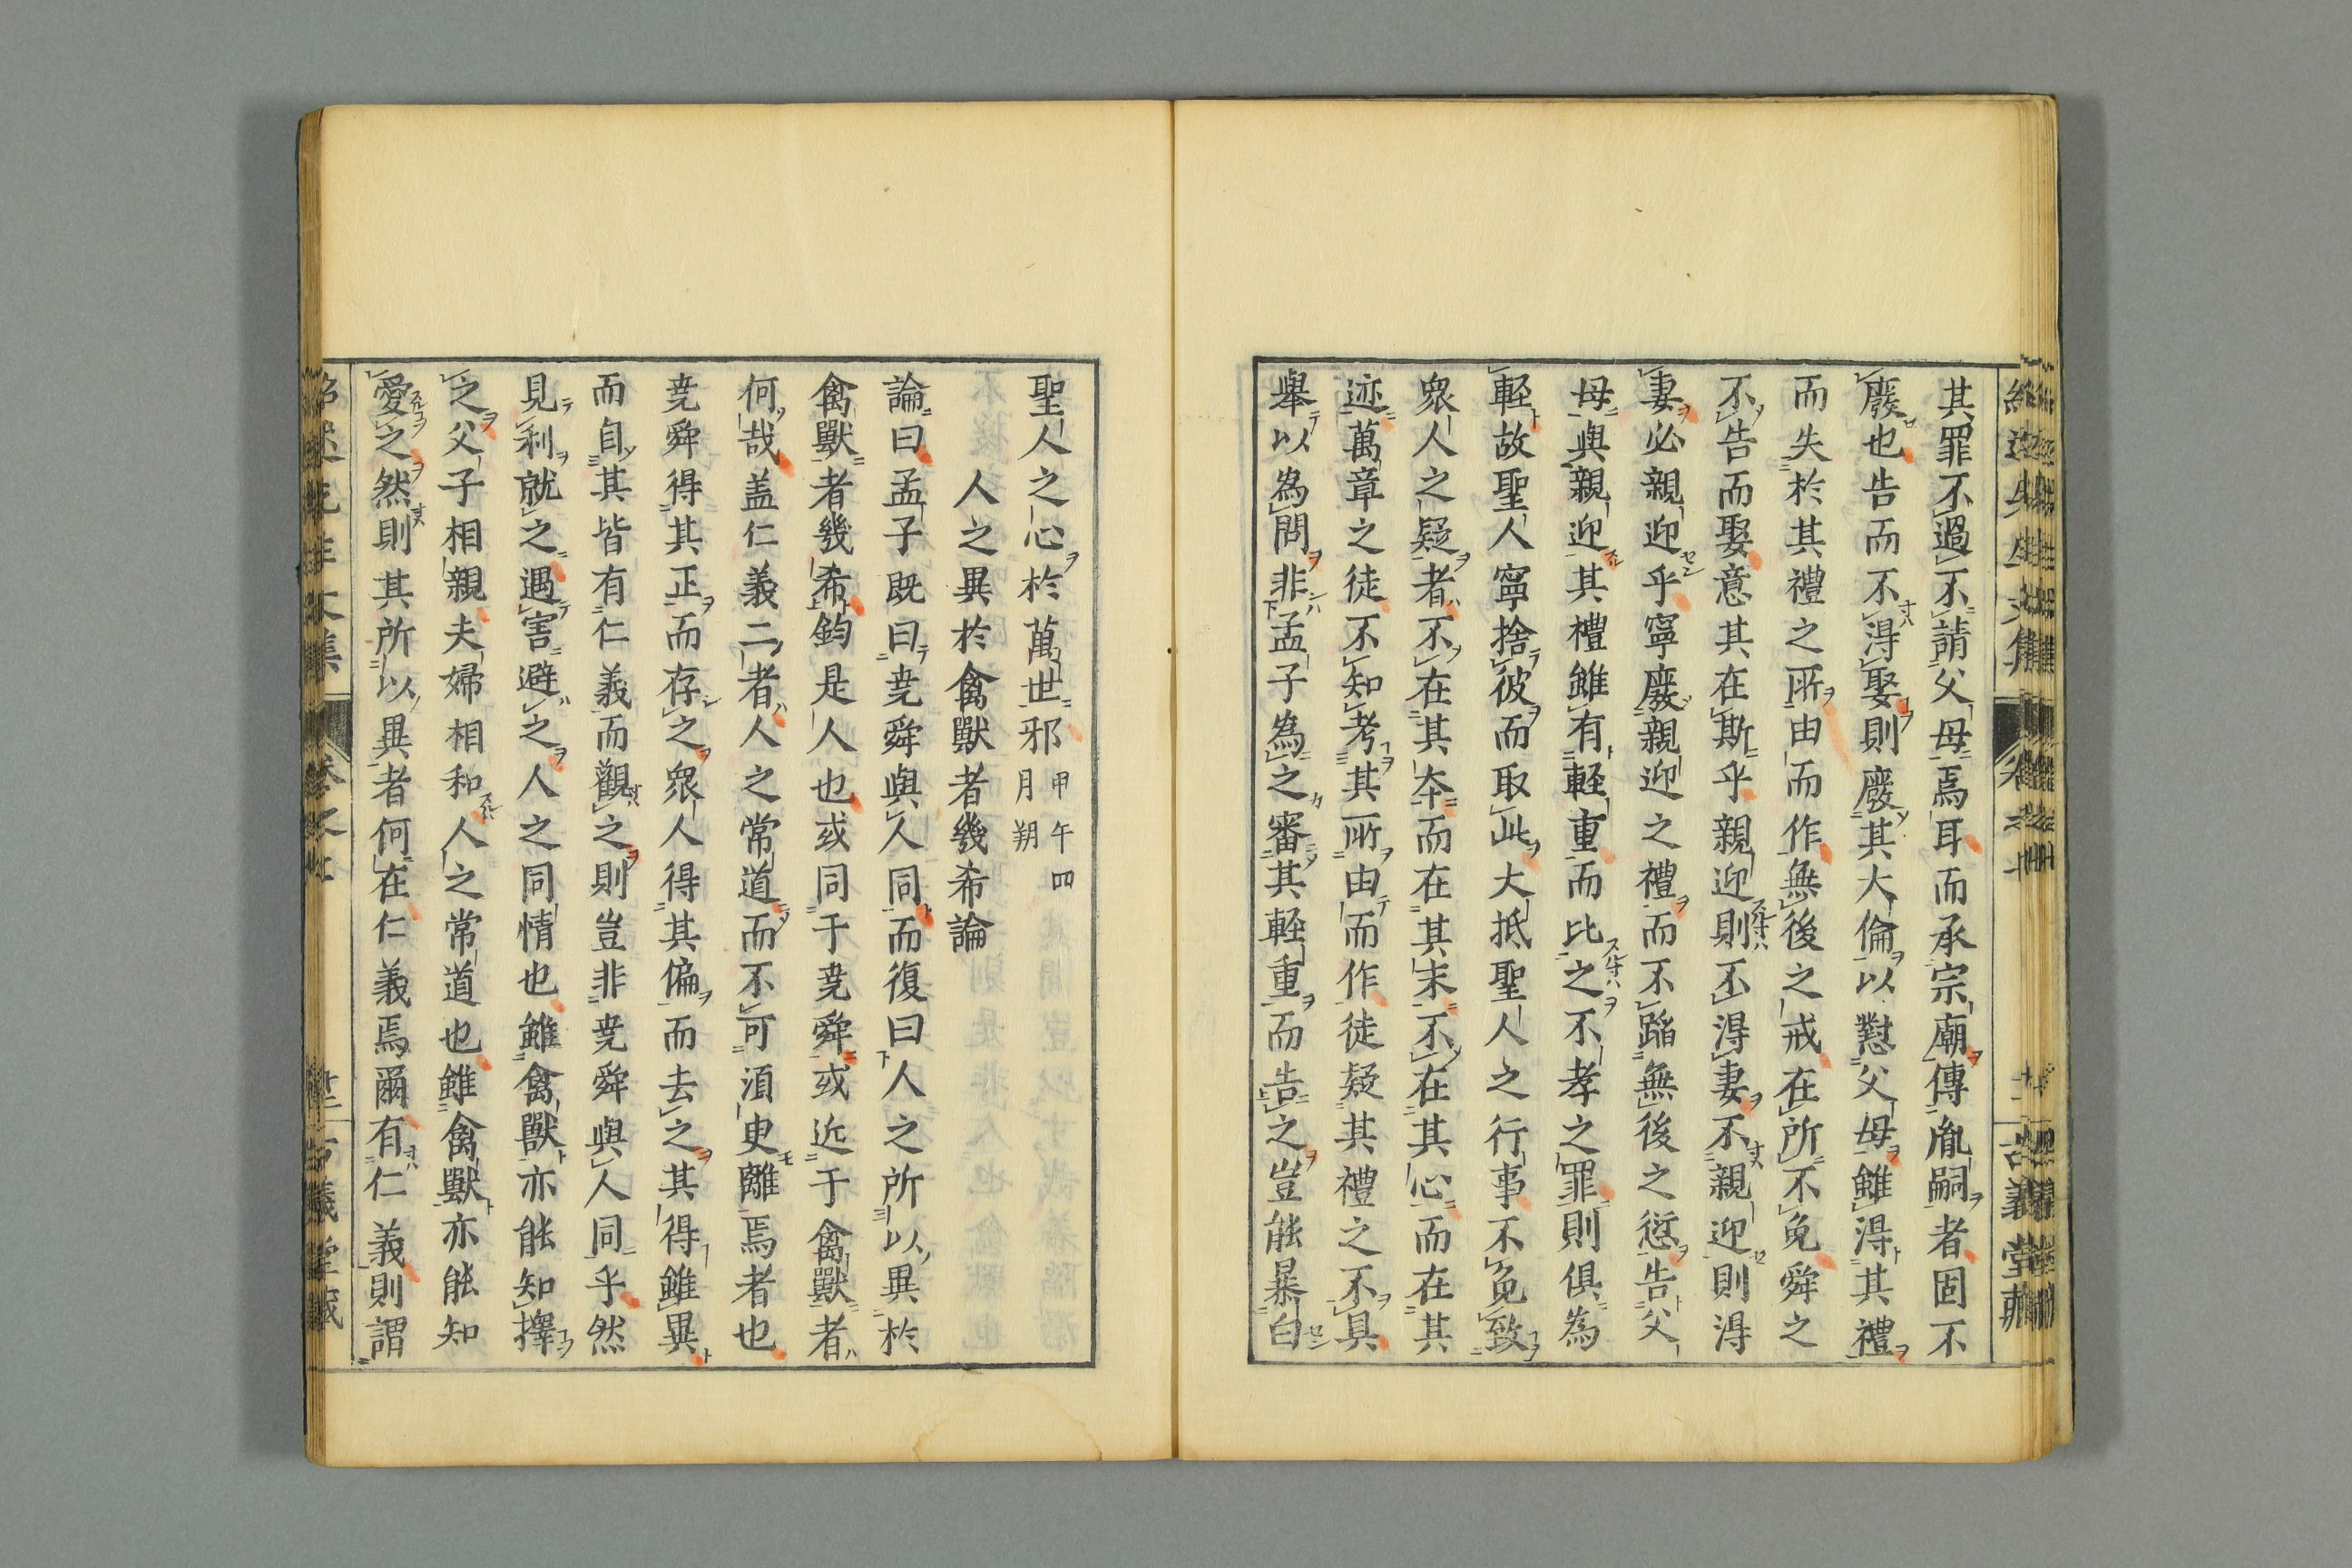 其罪不過不請父母焉耳而承宗廟傳胤嗣者固不
廢也告而不得娶則廢其大倫以懟父母雖得其禮
而失於其禮之所由而作無後之戒在所不免舜之
不告而娶意其在斯乎親迎則不得妻不親迎則得
妻必親迎乎寧廢親迎之禮而不蹈無後之愆告父
母與親迎其禮雖有輕重而比之不孝之罪則俱為
軽故聖人寧捨彼而取此大抵聖人之行事不免致
衆人之疑者不在其夲而在其末不在其心而在其
迹萬章之徒不知考其所由而作徒疑其禮之不具
舉以為問非孟子為之審其輕重而告之豈能暴白
聖人之心於萬世邪 甲午四月朔
人之異於禽獸者幾希論
論曰孟子既曰尭舜與人同而復曰人之所以異於
禽獸者幾希鈞是人也或同于尭舜或近于禽獸者
何哉盖仁義二者人之常道而不可須臾離焉者也
尭舜得其正而存之衆人得其偏而去之其得雖異
而自其皆有仁義而觀之則豈非尭舜與人同乎然
見利就之遇害避之人之同情也雖禽獸亦能知擇
之父子相親夫婦相和人之常道也雖禽獸亦能知
愛之然則其所以異者何在仁義焉爾有仁義則謂